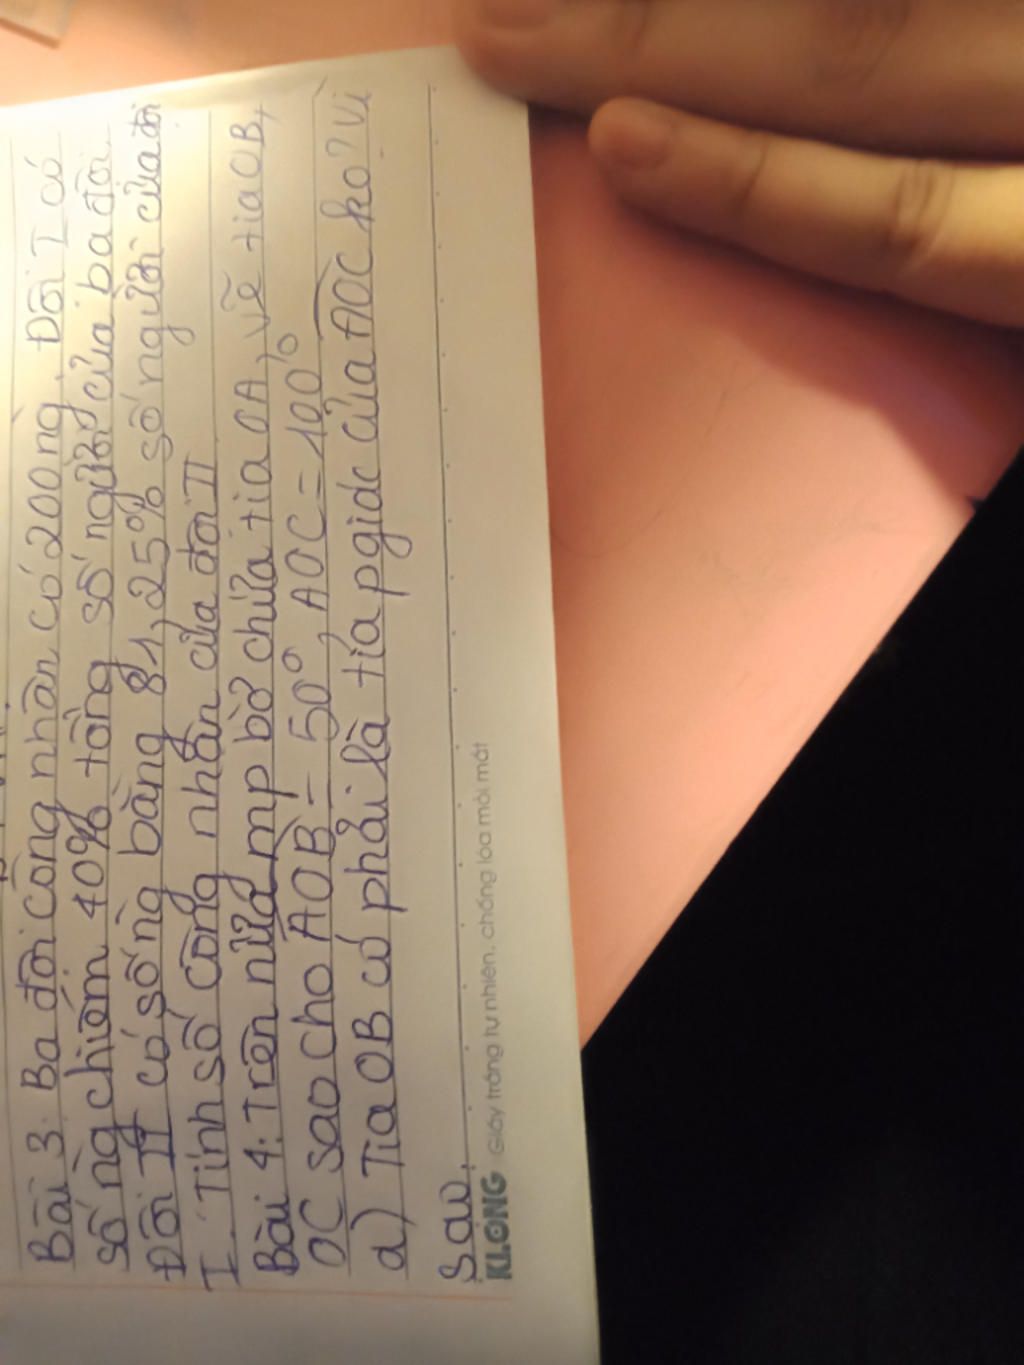 Bài 3. Ba đội công nhân có 200 ng. Đội I có
số ng chiếm 40% tổng số người của ba đội.
Đội II có số ng bằng 81,25% số người của đội
I. Tính số công nhân của đội II
Bài 4: Trên nửa mp bờ chứa tia OA, vẽ tia OB,
OC sao cho AOB = 50°, AOC = 100°
a) Tia OB có phải là tia pgiác của AOC ko? Vì
sao.
KLONG Giấy trắng tự nhiên, chống lóa mỏi mắt